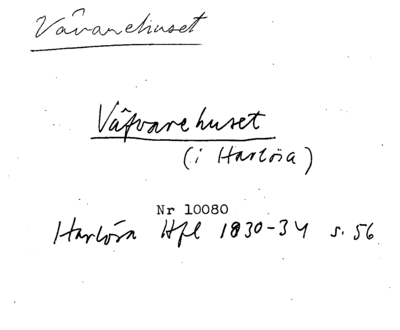 Vävarehuset
Väfvarehuset
(i Harlösa)
Nr 10080
Harlösa Hfl 1830-34 s. 56